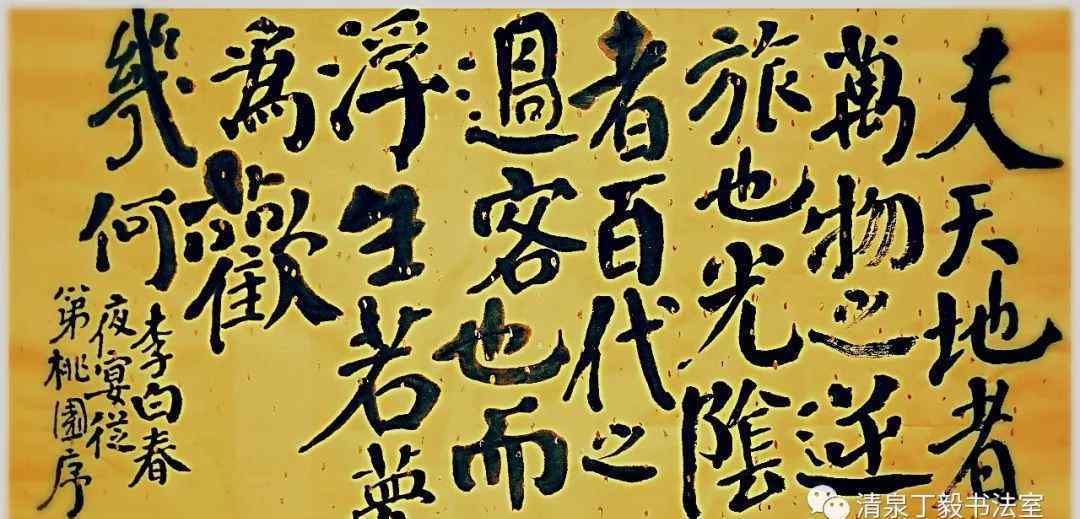 夫天地者
萬物之逆
旅也光陰
者百代之
過客也而
浮生若夢
為歡
幾何
李白春
夜宴從
第桃園序
清泉丁毅书法室